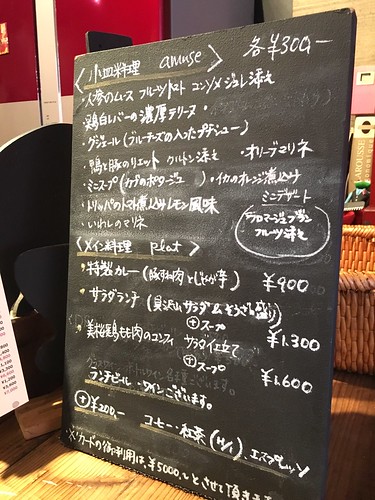 〈小皿料理 amuse〉 各¥300-
・人参のムース フルーツトマト コンソメジュレ添え
・鶏白レバーの濃厚テリーヌ・
・グジェール(ブルーチーズの入ったプチシュー)
・鴨と豚のリエット クルトン添え ・オリーブマリネ
・ミニスープ(カブのポタージュ) ・イカのオレンジ煮込み
・トリッパのトマト煮込みレモン風味
・いわしのマリネ
ミニデザート
フロマージュブラン
フルーツ添え
〈メイン料理 plat〉
・特製カレー(豚肉とじゃが芋) ¥900
・サラダランチ(具沢山サラダ おそうざい盛り)
⊕スープ ¥1.300
・美桜鶏もも肉のコンフィ サラダ仕立て
⊕スープ ¥1.600
ランチビール・ワインございます。
⊕¥200- コーヒー 紅茶(H/I)、エスプレッソ
※カードの御利用は、¥5000〜とさせて頂きま
LAROUSSE